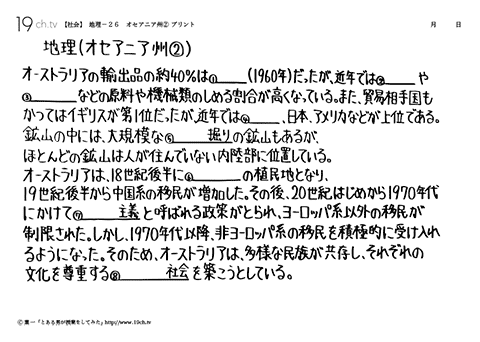 19ch.tv 【社会】 地理－２６ オセアニア州② プリント 月 日
地理(オセアニア州②)
オーストラリアの輸出品の約40%は①____(1960年)だったが、近年では②____や
③____などの原料や機械類のしめる割合が高くなっている。また、貿易相手国も
かつてはイギリスが第1位だったが、近年では④____、日本、アメリカなどが上位である。
鉱山の中には、大規模な⑤____掘りの鉱山もあるが、
ほとんどの鉱山は人が住んでいない内陸部に位置している。
オーストラリアは、18世紀後半に⑥____の植民地となり、
19世紀後半から中国系の移民が増加した。その後、20世紀はじめから1970年代
にかけて⑦____主義と呼ばれる政策がとられ、ヨーロッパ系以外の移民が
制限された。しかし、1970年代以降、非ヨーロッパ系の移民を積極的に受け入れ
るようになった。そのため、オーストラリアは、多様な民族が共存し、それぞれの
文化を尊重する⑧____社会を築こうとしている。
© 葉一「とある男が授業をしてみた」http://www.19ch.tv